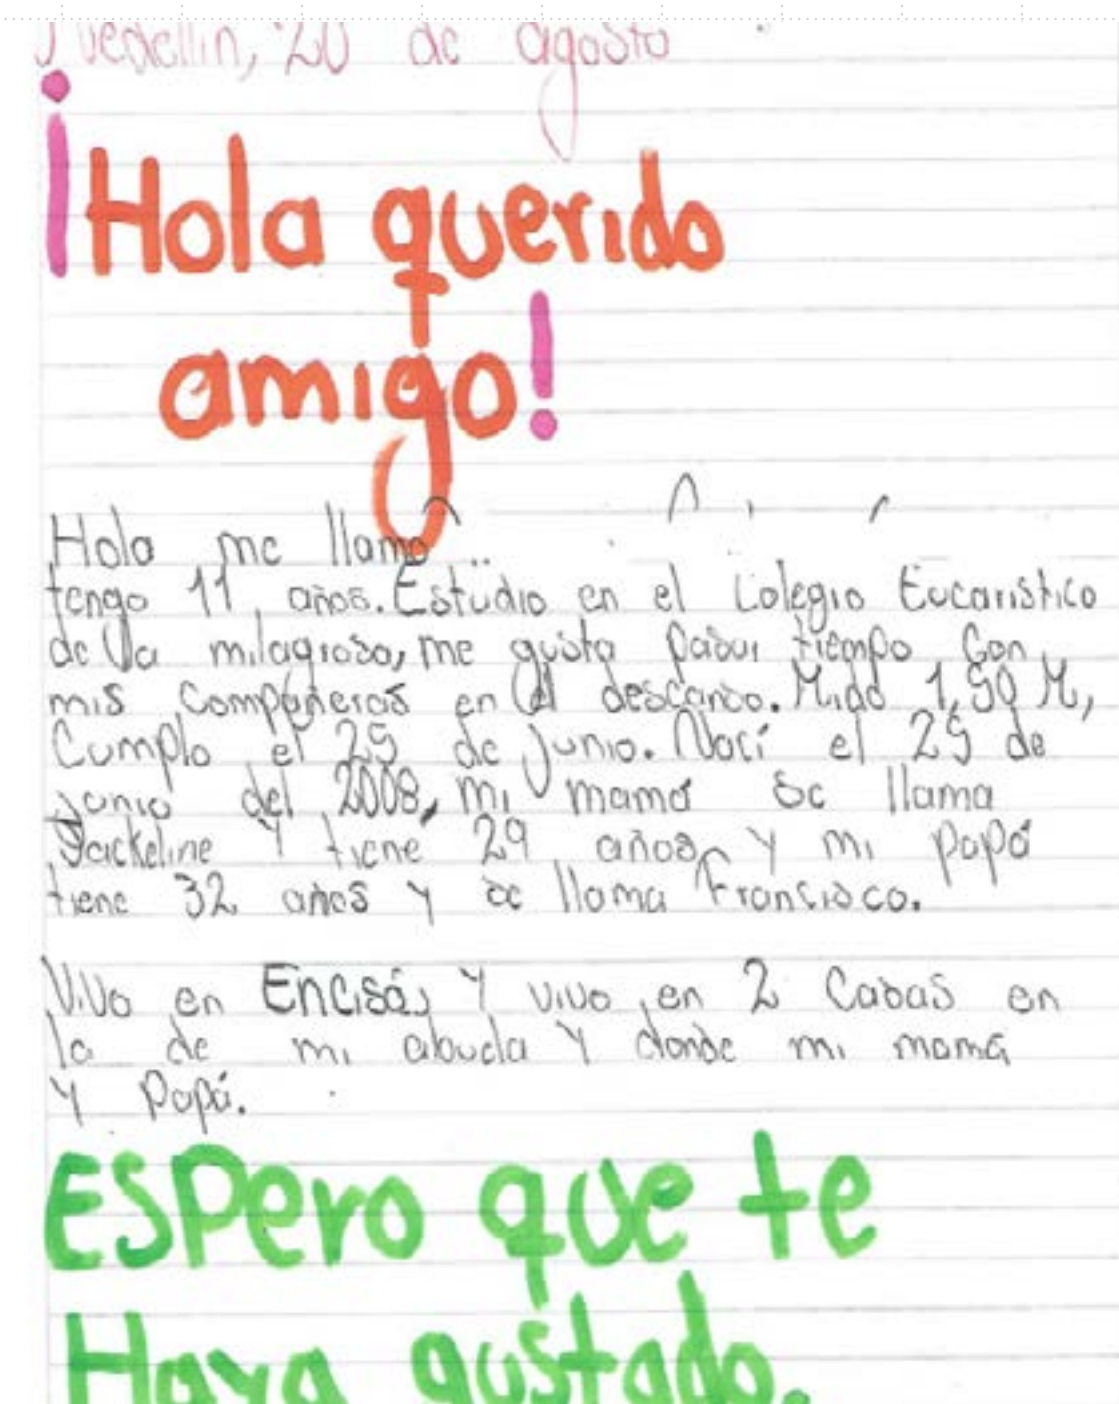 Medellín, 20 de agosto
¡Hola querido
amigo!
Hola me llamo
tengo 11 años. Estudio en el Colegio Eucarístico
de la milagrosa, me gusta pasar tiempo con
mis compañeras en el descanso. Mido 1,50 M,
Cumplo el 25 de junio. Nací el 25 de
junio del 2008, mi mamá se llama
Jackeline Y tiene 29 años, Y mi papá
tiene 32 años y se llama Francisco.
Vivo en Encisó, Y vivo en 2 Casas en
la de mi abuela Y donde mi mamá
Y Papá.
ESPero que te
Haya gustado.